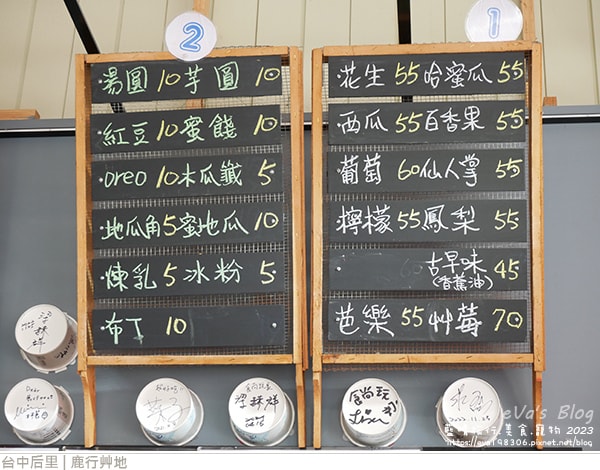 2
1
湯圓 10 芋圓 10
紅豆 10 蜜餞 10
oreo 10 木瓜籤 5
地瓜角 5 蜜地瓜 10
煉乳 5 冰粉 5
布丁 10
花生 55 哈蜜瓜 55
西瓜 55 百香果 55
葡萄 60 仙人掌 55
檸檬 55 鳳梨 55
古早味 45
(香蕉油)
芭樂 55 艸莓 70
食尚玩家
eVa's Blog
2023
https://eva198306.pixnet.net/blog
台中后里 | 鹿行艸地